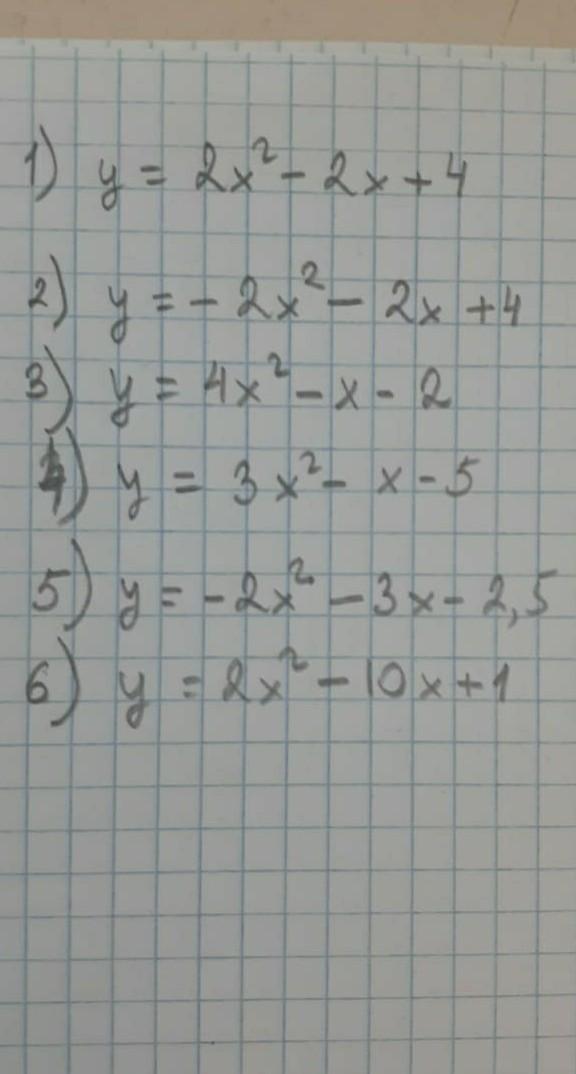 1) y = 2x² - 2x + 4
2) y = - 2x² - 2x + 4
3) y = 4x² - x - 2
4) y = 3x² - x - 5
5) y = -2x² - 3x - 2,5
6) y = 2x² - 10x + 1